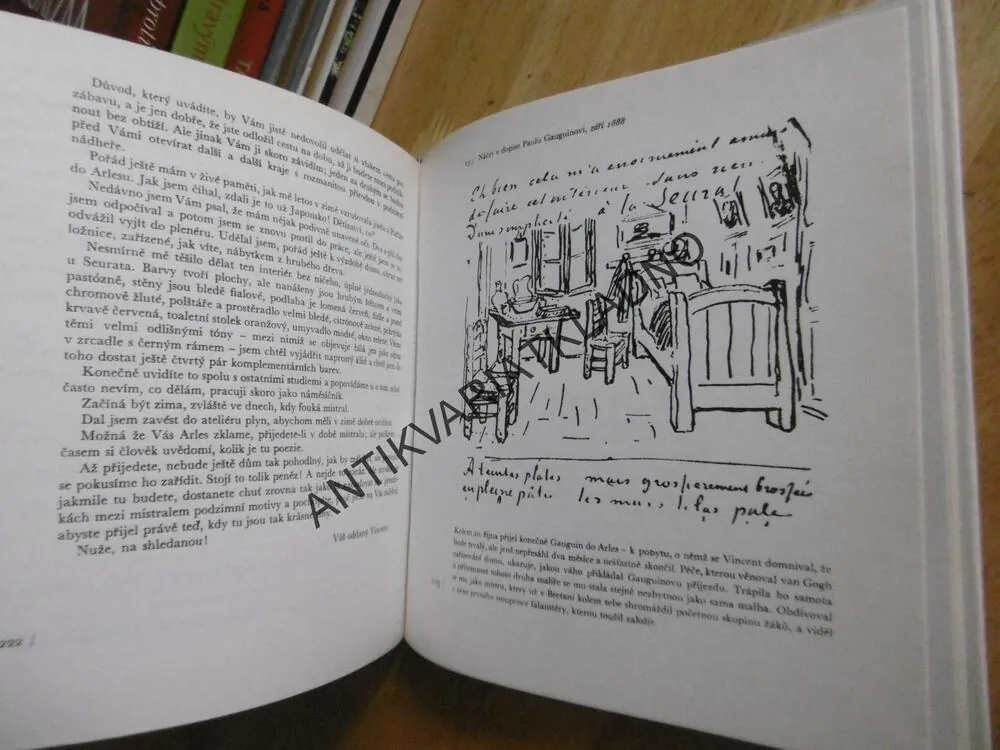 Důvod, který uvádíte, by Vám jistě nedovolil udělat si vlakem cestu pro
zábavu, a je jen dobře, že jste odložil cestu na dobu, až ji budete moci podnik-
nout bez obtíží. Ale jinak Vám ji skoro závidím; jeden za druhým se budou
před Vámi otevírat další a další kraje s rozmanitou přírodou v podzimní
nádheře.
Pořád ještě mám v živé paměti, jak mě letos v zimě vzrušovala jízda z Paříže
do Arlesu. Jak jsem číhal, zdali je to už Japonsko! Dětinství, co?
Nedávno jsem Vám psal, že mám nějak podivně unavené oči. Dva a půl dne
jsem odpočíval a potom jsem se znovu pustil do práce, ale ještě jsem se ne-
odvážil vyjít do plenéru. Udělal jsem, pořád ještě k výzdobě domu, obraz mé
ložnice, zařízené, jak víte, nábytkem z hrubého dřeva.
Nesmírně mě těšilo dělat ten interiér bez ničeho, úplně jednoduchý jako
u Seurata. Barvy tvoří plochy, ale nanášeny jsou hrubým štětcem a
pastózně, stěny jsou bledě fialové, podlaha je lomená červeň, židle a postel
chromově žluté, polštáře a prostěradlo velmi bledé, citrónově zelené, pokrývka
krvavě červená, toaletní stolek oranžový, umyvadlo modré, okno zelené. Všemi
těmi velmi odlišnými tóny – mezi nimiž se objevuje bílá jen jako odraz
v zrcadle s černým rámem – jsem chtěl vyjádřit naprostý klid a chtěl jsem do
toho dostat ještě čtvrtý pár komplementárních barev.
Konečně uvidíte to spolu s ostatními studiemi a popovídáme si o tom, neboť
často nevím, co dělám, pracuji skoro jako náměsíčník.
Začíná být zima, zvláště ve dnech, kdy fouká mistral.
Dal jsem zavést do ateliéru plyn, abychom měli v zimě dobré osvětlení.
Možná že Vás Arles zklame, přijedete-li v době mistralu; ale počkejte,
časem si člověk uvědomí, kolik je tu poezie.
Až přijedete, nebude ještě dům tak pohodlný, jak by měl být, ale
se pokusíme ho zařídit. Stojí to tolik peněz! A nejde to naráz.
jakmile tu budete, dostanete chuť zrovna tak jako já malovat
kách mezi mistralem podzimní motivy a
abyste přijel právě teď, kdy tu jsou tak krásné dny.
Nuže, na shledanou!
Váš oddaný Vincent
222
Náčrt v dopise Paulu Gauguinovi, září 1888
Eh bien cela m'a enormement amusé
de faire cet intérieur sans rien
D'une simplicité à la Seurat
A teintes plates mais grossierement brossées
en pleine pâte les murs lilas pale
Kolem 20. října přijel konečně Gauguin do Arlesu – k pobytu, o němž se Vincent domníval, že
bude trvalý, ale jenž nepřesáhl dva měsíce a nešťastně skončil. Péče, kterou věnoval van Gogh
zařizování domu, ukazuje, jakou váhu přikládal Gauguinovu příjezdu. Trápila ho samota
a přítomnost tohoto druha malíře se mu stala stejně nezbytnou jako sama malba. Obdivoval
se mu jako mistru, který už v Bretani kolem sebe shromáždil početnou skupinu žáků, a viděl
v něm prvního stoupence falanstéry, kterou toužil založit.
ANTIKVARIATIKLADNO